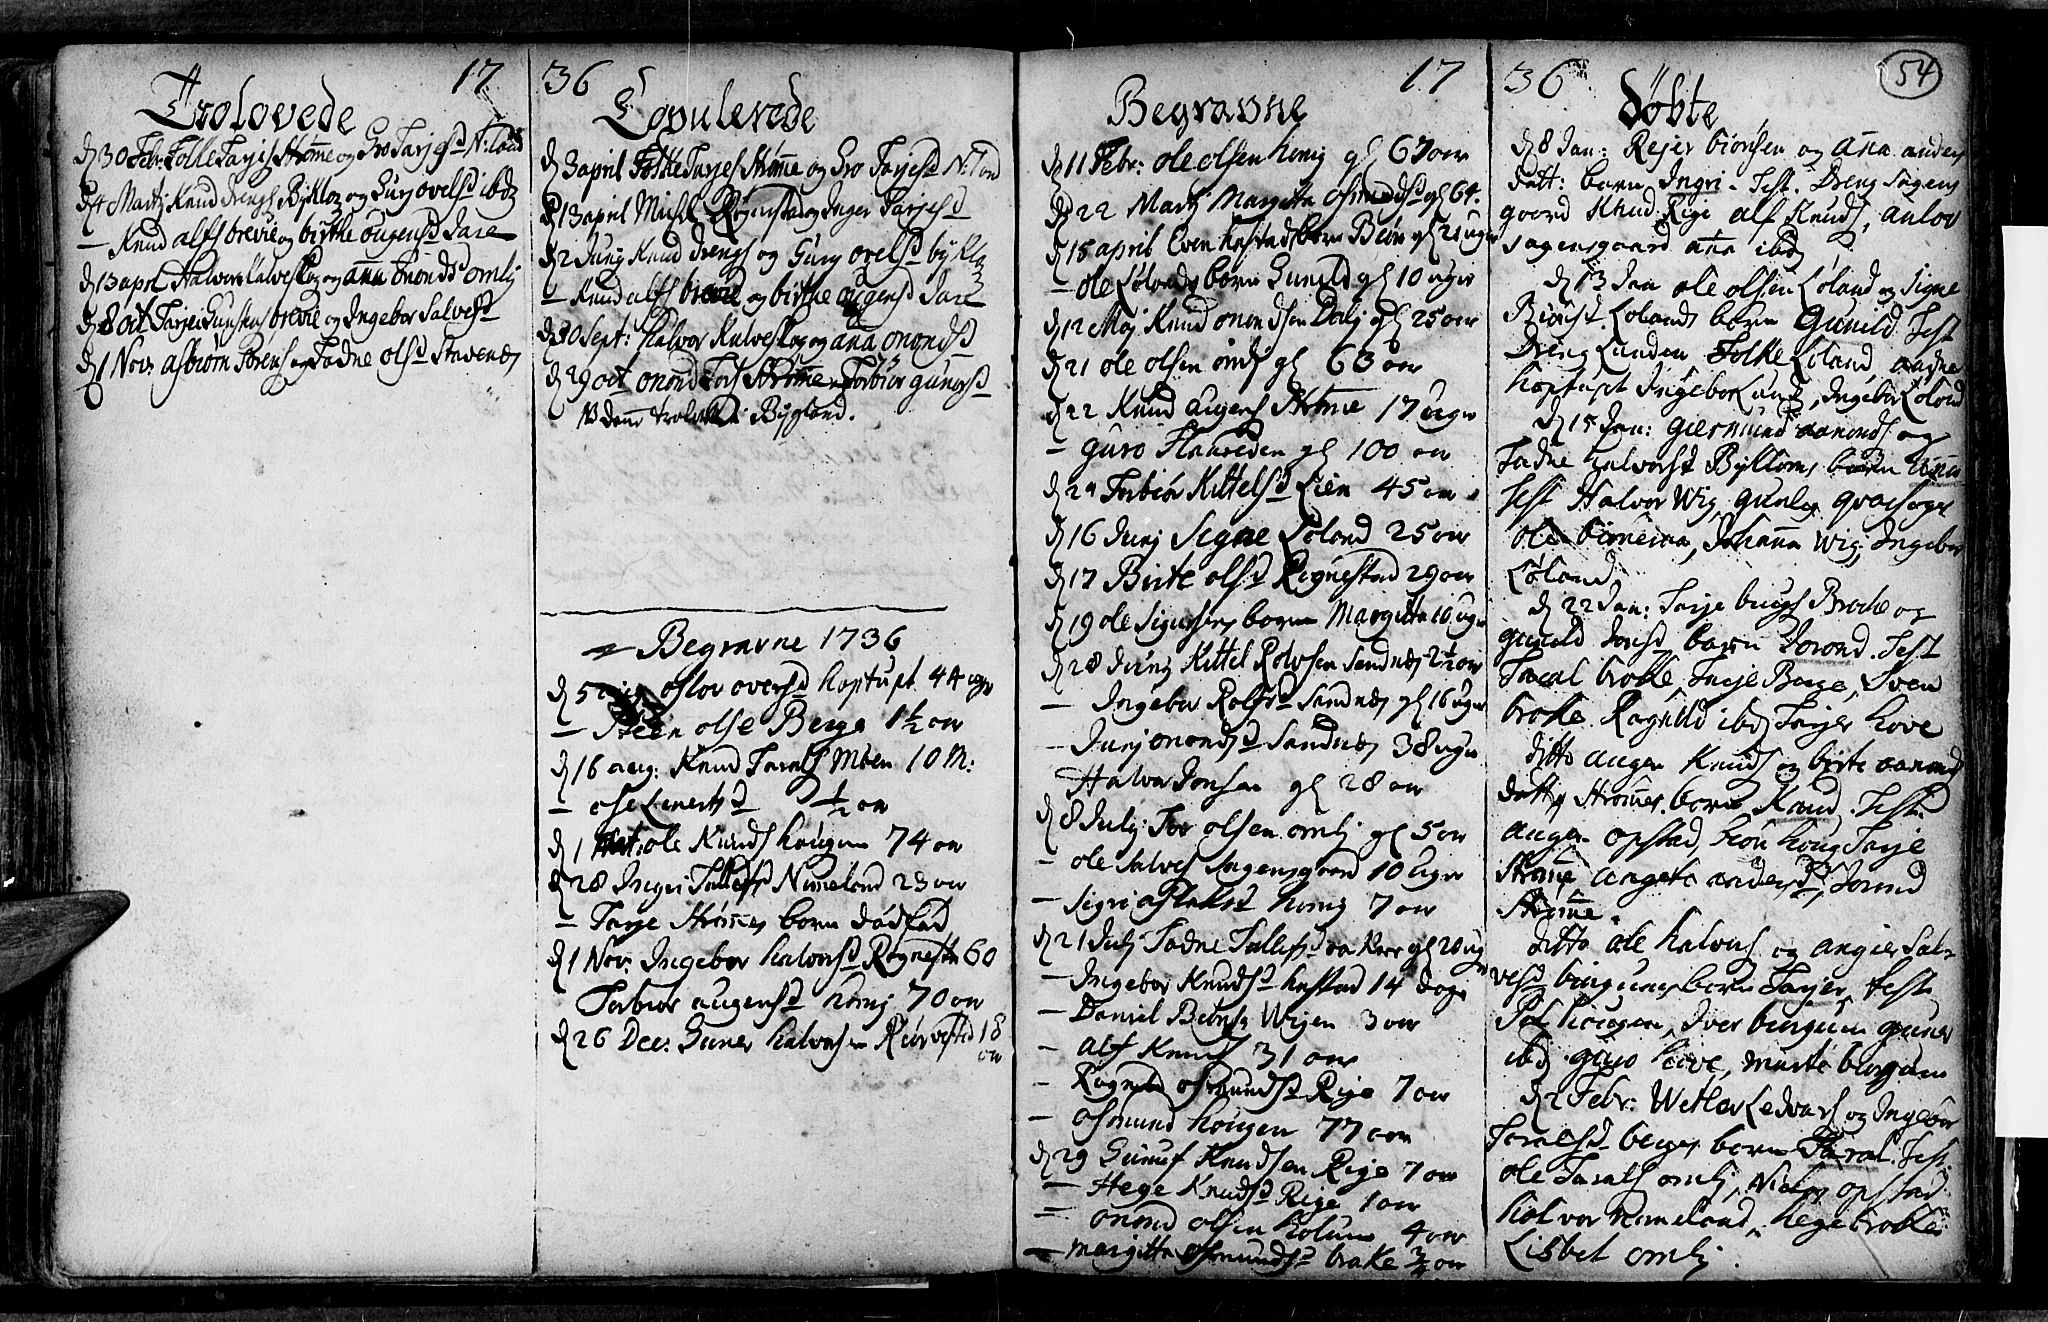 17
Trolovede
d 30 Febr: Folke Tarjes Strømme og Gro Tarjesd N: land
d 4 Martj Knud Drengs Bykloe og Gurj ovelsd ibd
– Knud alfs brevie og birthe augensd Jare
d 13 aprl Halvor Kalveskog og anna onondsd omlj
d 8 oct Tarjer Gunsens brevie og Ingebor Salvesd
d 1 Nov: asbiørn Torens og Tadne olsd Stavenes
36
Copulerede
d 3 april Folke Tarjes Strømme og Gro Tarjesd N: land
d 13 april Michl Rignestad og Inger Tarjesd
d 2 Junij Knud Drengs og Gurj ovelsd bykle
– Knud alfs brevie og birthe augensd Jare
d 30 Sept: halvor Kalveskog og ana onondsd
d 29 oct onond Strømme Torbiør gunersd
NB denne trolovet i Bygland.
Begravne 1736
d 5 oslov oversd hoptupt 44 ugr
– Steen olse Berge 1 1/2 aar
d 16 aug: Knud Taralfs Moen 10 M:
– ose Lenertsd 1/2 aar
d 1 oct: ole Knuds haugen 74 aar
d 28 Ingri Tallefs Nomeland 23 aar
– Tarje Strømmes barn dødfød
d 1 Nov: Ingebor halvorsd Rognest 60
Torbiør augensd homj 70 aar
d 26 Dec: Guner halvorsen Riørvestd 18
aar
17
Begravne
d 11 Febr: ole olsen homj gl 67 aar
d 22 Martj Margitte osmundsd gl 64.
d 15 april Even hastads barn Beiør gl 21 uger
– ole Lølands barn Gunild gl 10 uger
d 12 Maj Knud onondsen Dalj gl 25 aar
d 21 ole olsen omlj gl 63 aar
d 22 Knud augens Strømme 17 uger
– Guro Flaarenden gl 100 aar
d 24 Torbiør Kittelsd Lien 45 aar
d 16 Junj Signe Løland 25 aar
d 17 Birte olsd Rignestad 29 aar
d 19 ole Sigursens barn Margitte 10 uger
d 28 Junj Kittel Rolvsen Sandnes 2 1/2 aar
– Ingebor Rolfsd Sandnes gl 16 uger
– Junj onondsd Sandnes 38 uger
Halvor Jonsen gl 28 aar
d 8 July: Tor olsen omlj gl 5 aar
– ole Salves Sagensgaard 10 uger
– Sigri aslaksd homj 7 aar
d 21 Julj Tadne Tallefsd gl 20 ugr
– Ingebor Knudsd hastad 14 dage
– Daniel Beinsen Wigen 3 aar
– alf Knuds 31 aar
– Ragnild osmundsd Rige 7 aar
– osmund hougen 77 aar
d 29 Gunuf Knudsen Rige 7 aar
– Hege Knudsd Rige 1 aar
– onond olsen holum 4 aar
– margitte osmundsd brake 3/4 aar
36
54
Døbte
d 8 Jan: Rejer biønsen og Ana anders
datt: barn Ingri. Test. Dreng Sagens
gaard Knud Rige alf Knuds, anlov
sagensgaard ana ibd
d 13 Jan ole olsen Løland og Signe
Biønsd. Lølands barn Gunild. Test
Dreng Lunden Folke Løland, aadne
hoptupt Ingebor Lund, Ingebor Løland
d 15 Jan: Giermund aanonds og
Tadne halvorsd Byklums barn Anna
Test Halvor Wig, gunlej qvaesage
ole bioneinn, Johanna Wig, Ingebor
Løland.
d 22 Jan: Tarje biugs Broke og
gunild Jonsd barn Jorond. Test
Taral broke, Tarje Berge, Sven
broke. Ragnild ibd Tarjer hove
ditto augen Knuds og birte aanonds
datt, Strømes. barn Knud. Test.
augen opstad, biøn houg Tarje
Strømme angete andersd, Jorond
Strømme.
ditto ole halvors og angier Sal-
vesd burgums barn Tarjer, Test
Pol hougen, Iver burgum guner
ibd guro hove, marte burgum
d 2 Febr: Wetle Ledvars og Ingebor
Taralsd berges barn Taral. Test.
ole Taralfs omlj, Nielss opstad
halvor Nomeland, hege broke
Lisbet omlj.